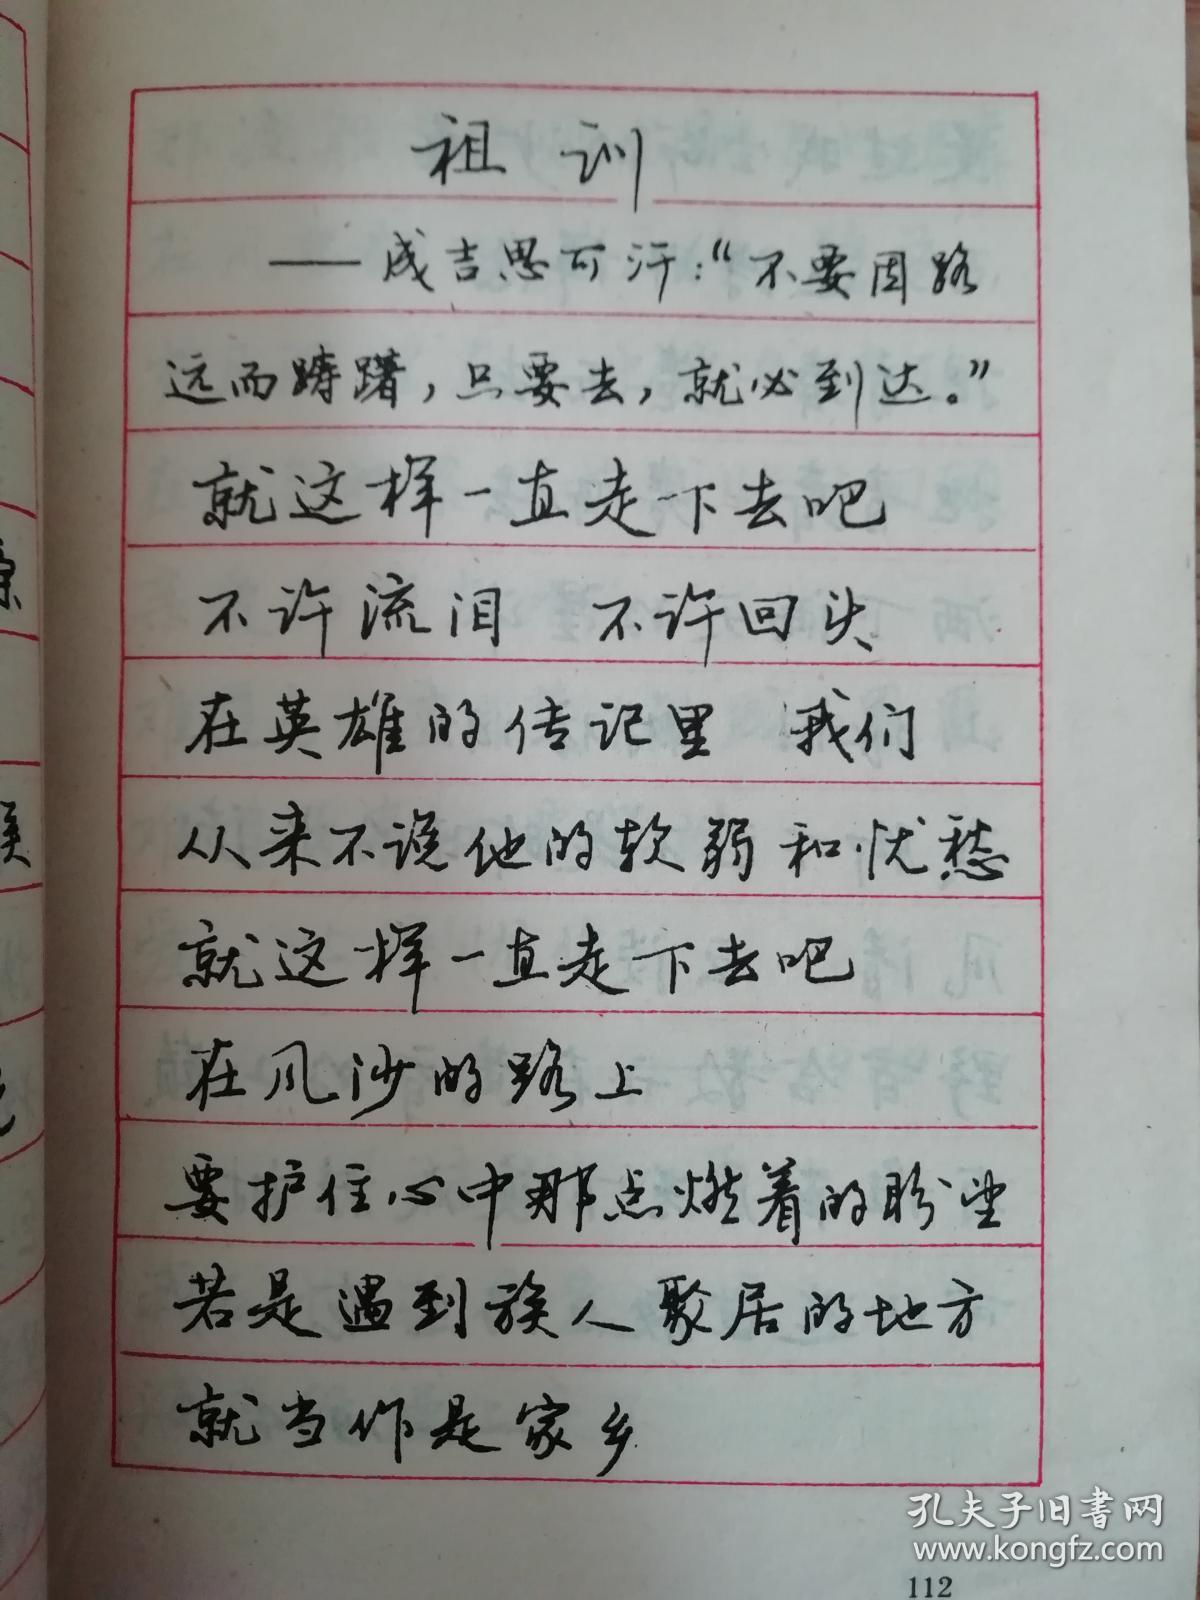 祖训
——成吉思可汗:“不要因路
远而踌躇，只要去，就必到达。”
就这样一直走下去吧
不许流泪 不许回头
在英雄的传记里 我们
从来不说他的软弱和忧愁
就这样一直走下去吧
在风沙的路上
要护住心中那点燃着的盼望
若是遇到族人聚居的地方
就当作是家乡
孔夫子旧书网
www.kongfz.com
112